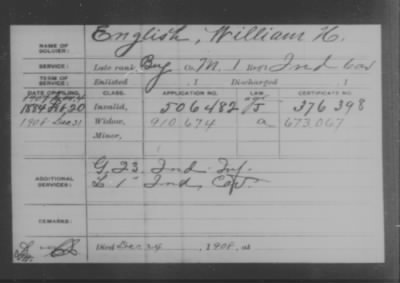 NAME OF SOLDIER: English, William H.
SERVICE: Late rank, Bug Co. M, 1 Reg't Ind Cav
TERM OF SERVICE: Enlisted , 1 Discharged , 1
DATE OF FILING. CLASS. APPLICATION NO. LAW. CERTIFICATE NO.
1884 20 Invalid, 506482 376398
1908 Dec 31 Widow, 910,674 a 673,067
Minor,
ADDITIONAL SERVICES: G 23 Ind Inf.
L 1" Ind Cav.
REMARKS:
Died Dec 24, 1908, at